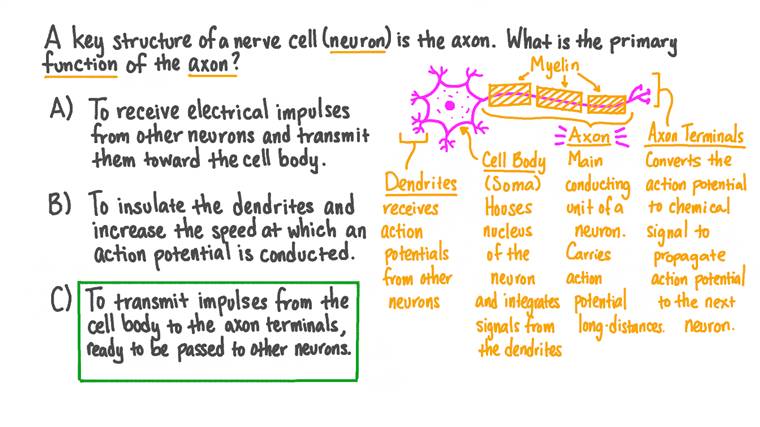 A key structure of a nerve cell (neuron) is the axon. What is the primary
function of the axon?
A) To receive electrical impulses
from other neurons and transmit
them toward the cell body.
B) To insulate the dendrites and
increase the speed at which an
action potential is conducted.
C) To transmit impulses from the
cell body to the axon terminals,
ready to be passed to other neurons.
Myelin
Dendrites
receives
action
potentials
from other
neurons
Cell Body
(Soma)
Houses
nucleus
of the
neuron
and integrates
signals from
the dendrites
Axon
Main
conducting
unit of a
neuron.
Carries
action
potential
long-distances.
Axon Terminals
Converts the
action potential
to chemical
signal to
propagate
action potential
to the next
neuron.